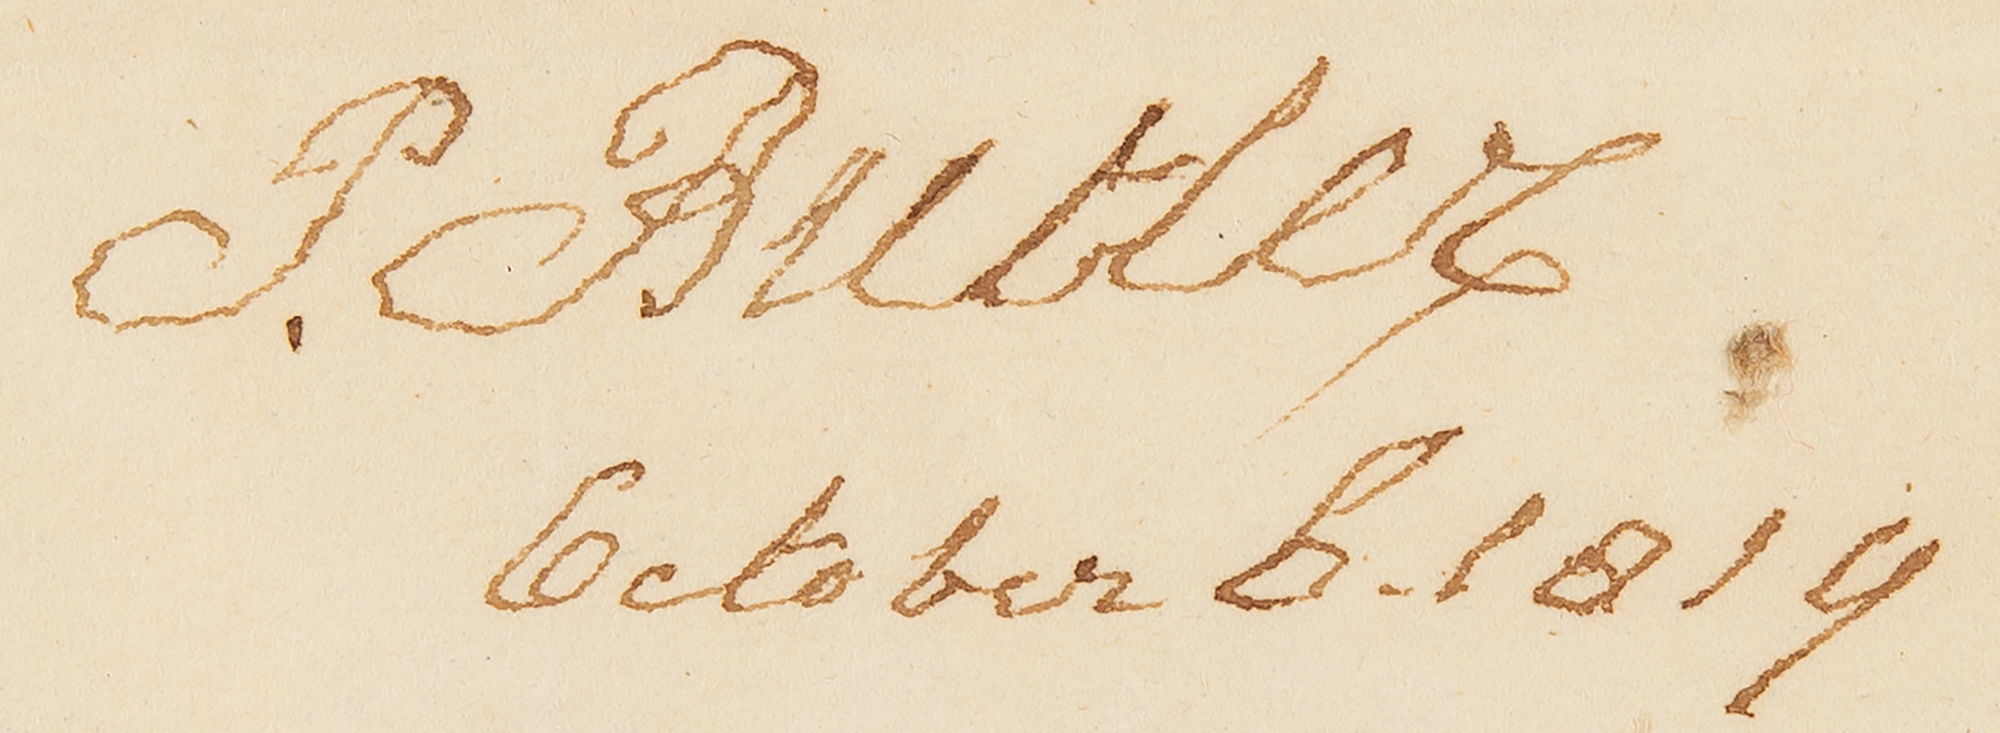 P. Butler
October 6. 1819